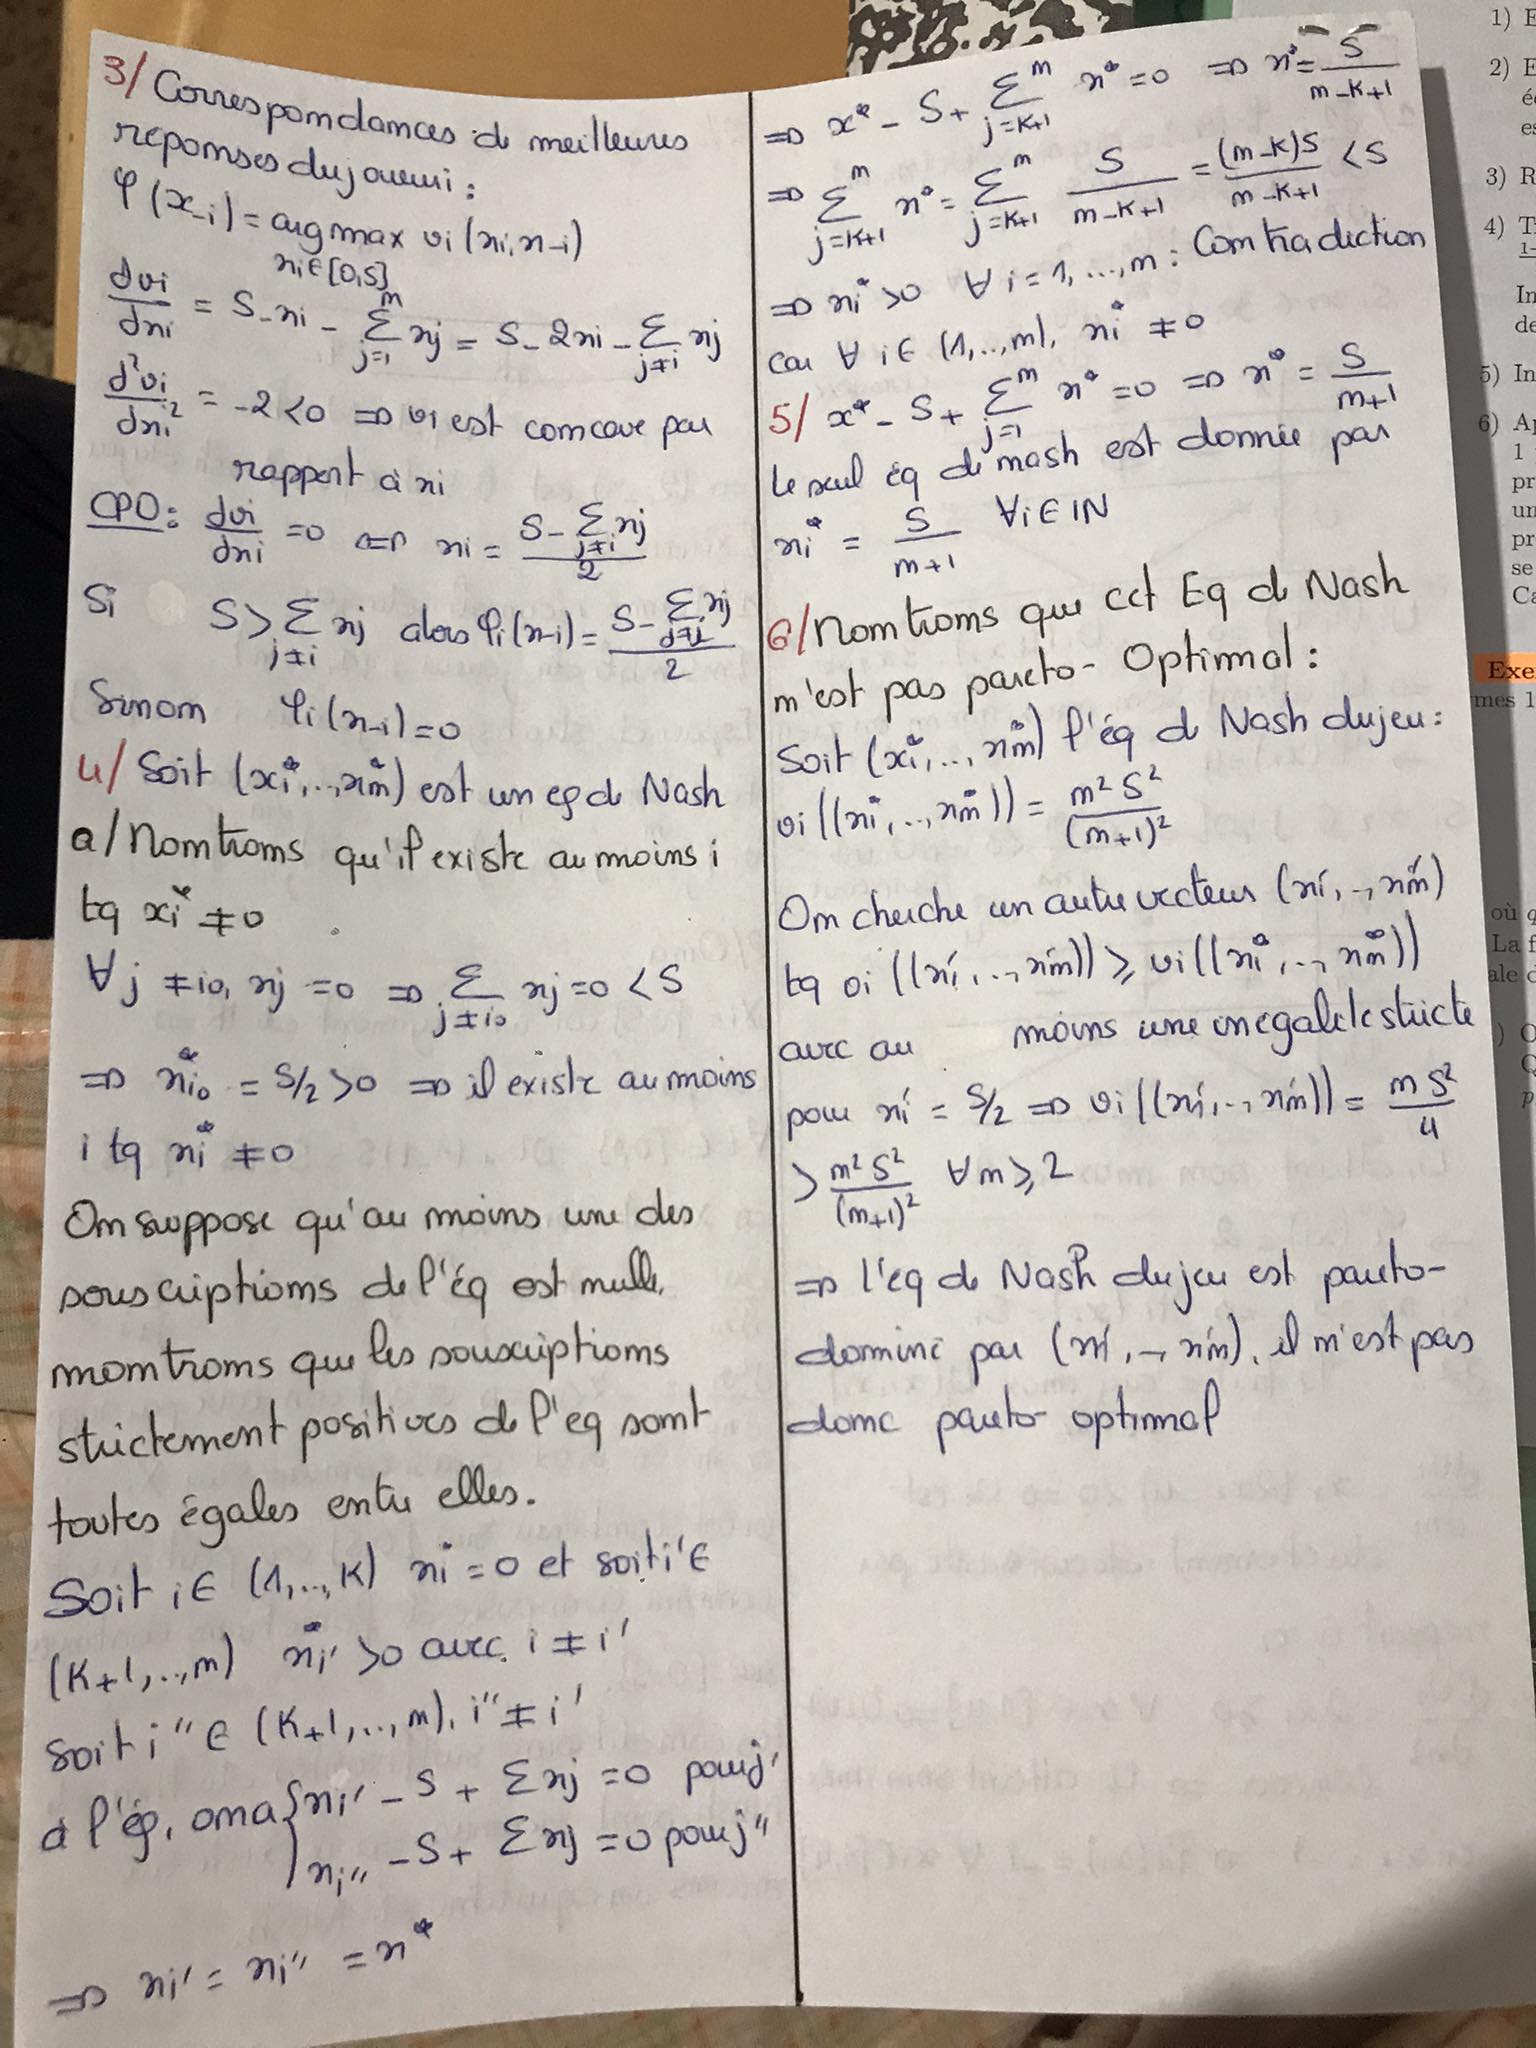 3/ Correspondances de meilleures
reponses du joueur i :
φ(x-i) = argmax vi(xi, x-i)
xi ∈ [0,S]
dvi/dxi = S - xi - Σ_{j=1}^{n} xj = S - 2xi - Σ_{j≠i} xj
d²vi/dxi² = -2 < 0 ⇒ vi est concave par
rapport à xi
CPO : dvi/dxi = 0 ⇔ xi = (S - Σ_{j≠i} xj)/2
Si S > Σ_{j≠i} xj alors φi(x-i) = (S - Σ_{j≠i} xj)/2
Sinon φi(x-i) = 0
4/ Soit (xi*, .., xn*) est un eq de Nash
a/ Montrons qu'il existe au moins i
tq xi* ≠ 0
∀ j ≠ i0, xj = 0 ⇒ Σ_{j≠i0} xj = 0 < S
⇒ xi0* = S/2 > 0 ⇒ il existe au moins
i tq xi* ≠ 0
On suppose qu'au moins une des
souscriptions de l'éq est nulle,
montrons que les souscriptions
strictement positives de l'eq sont
toutes égales entre elles.
Soit i ∈ (1,..,K) xi* = 0 et soit i' ∈
(K+1,..,n) xi'* > 0 avec i ≠ i'
soit i'' ∈ (K+1,..,n), i'' ≠ i'
à l'éq, on a { xi' - S + Σ xj = 0 pour j'
xi'' - S + Σ xj = 0 pour j''
⇒ xi' = xi'' = x*
⇒ x* - S + Σ_{j=K+1}^{n} x* = 0 ⇒ x* = S/(n-K+1)
⇒ Σ_{j=K+1}^{n} x* = Σ_{j=K+1}^{n} S/(n-K+1) = (n-K)S/(n-K+1) < S
⇒ xi* > 0 ∀ i = 1, ..., n : Contradiction
car ∀ i ∈ (1,..,n), xi* ≠ 0
5/ x* - S + Σ_{j=1}^{n} x* = 0 ⇒ x* = S/(n+1)
le seul éq de nash est donnée par
xi* = S/(n+1) ∀ i ∈ IN
6/ Montrons que cet Eq de Nash
n'est pas pareto - Optimal :
Soit (xi*, .., xn*) l'éq de Nash du jeu :
vi((xi*, .., xn*)) = n²S²/(n+1)²
On cherche un autre vecteur (xi', .., xn')
tq vi((xi', .., xn')) ≥ vi((xi*, .., xn*))
avec au moins une inegalité stricte
pour xi' = S/2 ⇒ vi((xi', .., xn')) = nS²/4
> n²S²/(n+1)² ∀ n ≥ 2
⇒ l'eq de Nash du jeu est pareto-
dominé par (xi', .., xn'), il n'est pas
donc pareto - optimal
1) E
2) E
3) R
4) T
5) In
6) Ap
Exe
mes 1
où q
La f
ale d